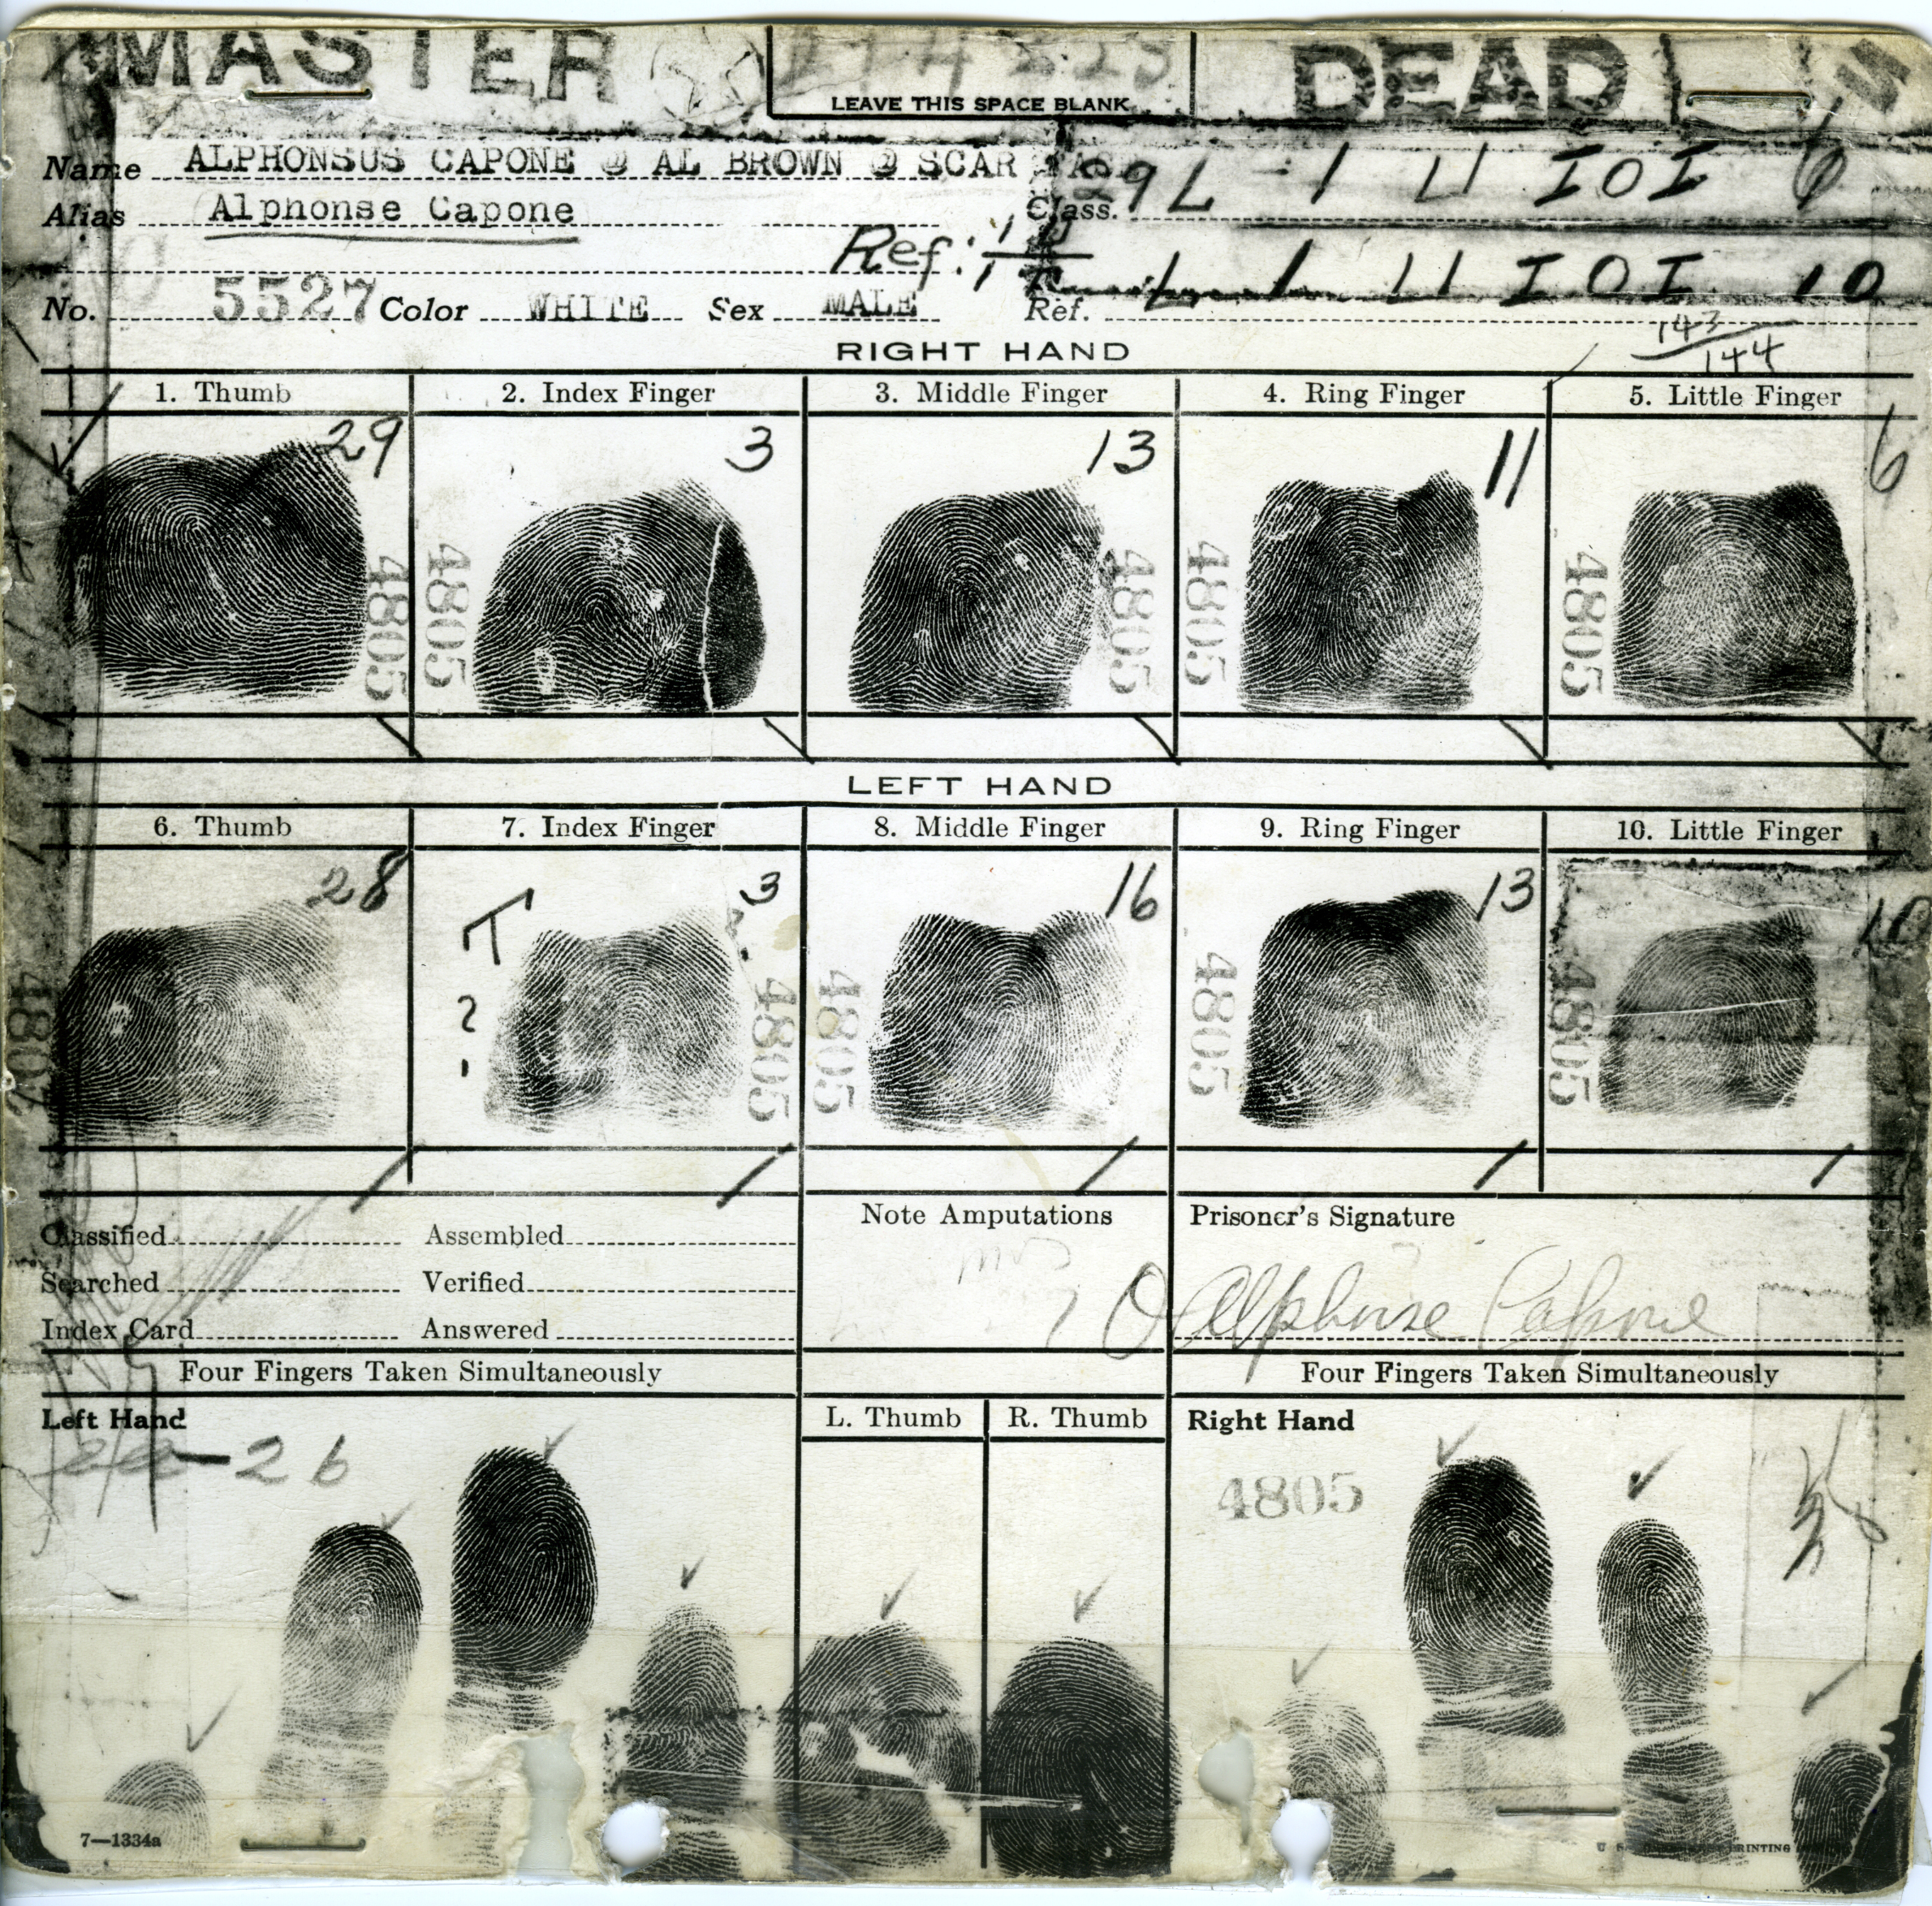 MASTER
DEAD
LEAVE THIS SPACE BLANK
Name ALPHONSUS CAPONE @ AL BROWN @ SCAR
Class. 29 L 1 U IOI 6
Alias Alphonse Capone
Ref:
L 1 U IOI 10
No. 5527 Color WHITE Sex MALE Ref.
143
144
RIGHT HAND
1. Thumb 2. Index Finger 3. Middle Finger 4. Ring Finger 5. Little Finger
29 3 13 11 6
4805 4805 4805 4805 4805
LEFT HAND
6. Thumb 7. Index Finger 8. Middle Finger 9. Ring Finger 10. Little Finger
28 T 3 16 13 10
?
4805 4805 4805 4805 4805
Classified Assembled
Searched Verified
Index Card Answered
Note Amputations
Prisoner's Signature
Alphonse Capone
Four Fingers Taken Simultaneously
Four Fingers Taken Simultaneously
Left Hand
L. Thumb R. Thumb
Right Hand
26
4805
7—1334a
U S PRINTING